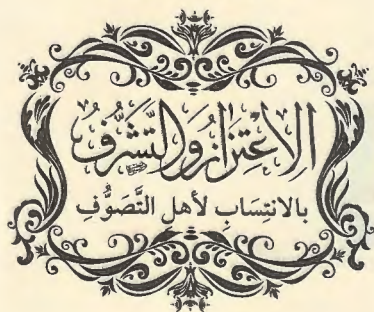 الاعْتِزَازُ وَالتَّشَرُّفُ
بالانتِسَابِ لأهلِ التَّصَوُّفِ